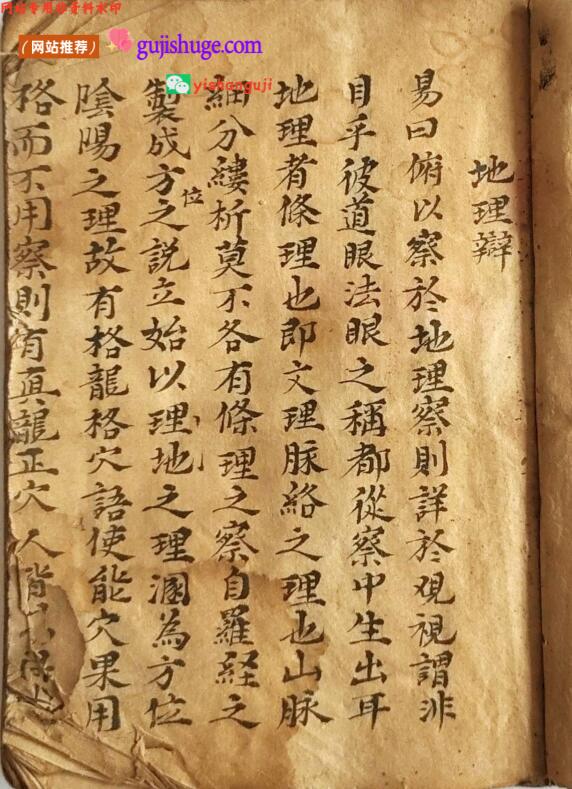 网站专用诠奇科水印
(网站推荐)
gujishuge.com
yishanguji
地理辯
易曰俯以察於地理察則詳於观視謂非
目乎彼道眼法眼之稱都從察中生出耳
地理者條理也即文理脉絡之理也山脉
細分縷析莫不各有條理之察自羅経之
製成方位之說立始以理地之理溷為方位
陰陽之理故有格龍格穴語使能穴果用
格而不用察則有真龍正穴人皆